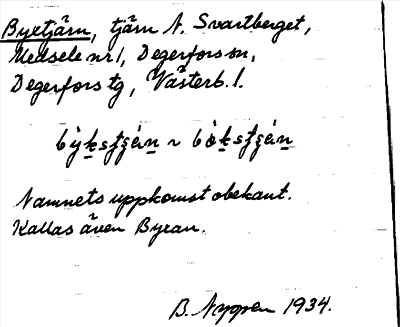 Byxtjärn, tjärn N. Svartberget,
Medsele nr 1, Degerfors sn,
Degerfors tg, Västerb. l.
Namnets uppkomst obekant.
Kallas även Byxan.
B. Nygren 1934.